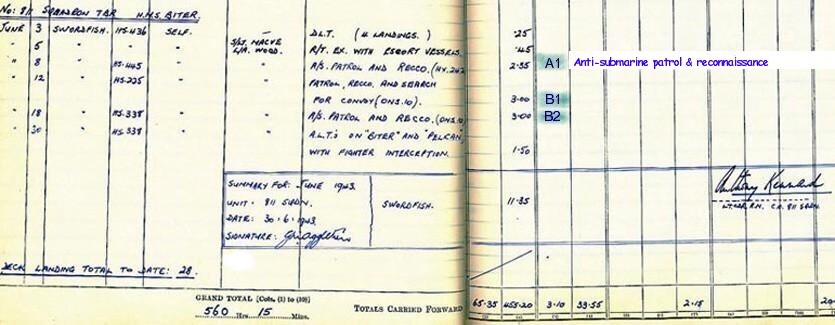 No: 811 SQUADRON TBR H.M.S. BITER.
JUNE 3 SWORDFISH. HS.436 SELF. — D.L.T. (4 LANDINGS.) .25
" 5 " " " S/Lt. MACVE L/A. WOOD. R/T. EX. WITH ESCORT VESSELS. .45
" 8 " HS.445 " " A/S. PATROL AND RECCO. 2.35 A1 Anti-submarine patrol & reconnaissance
" 12 " HS.225 " " PATROL, RECCO, AND SEARCH
FOR CONVOY (ONS.10). 3.00 B1
" 18 " HS.338 " " A/S. PATROL AND RECCO. (ONS.10) 3.00 B2
" 30 " HS.338 " " A.L.T'S ON "BITER" AND "PELICAN"
WITH FIGHTER INTERCEPTION. 1.50
SUMMARY FOR: JUNE 1943.
UNIT: 811 SQDN. SWORDFISH. 11.35
DATE: 30.6.1943.
SIGNATURE:
Anthony Kennard
LT.CDR. R.N. C.O. 811 SQDN.
DECK LANDING TOTAL TO DATE: 28.
GRAND TOTAL [Cols. (1) to (10)]
560 Hrs. 15 Mins.
TOTALS CARRIED FORWARD 65.35 455.20 3.10 33.55 2.15